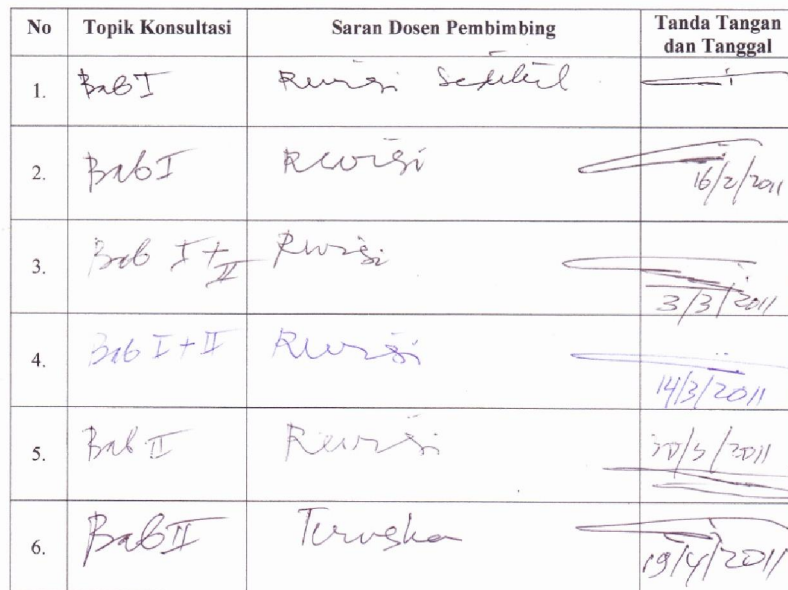 No Topik Konsultasi Saran Dosen Pembimbing Tanda Tangan
dan Tanggal
1. Bab I Revisi
2. Bab I Revisi 16/2/2011
3. Bab I + II Revisi 3/3/2011
4. Bab I + II Revisi 14/3/2011
5. Bab II Revisi
6. Bab II Teruska 19/4/2011